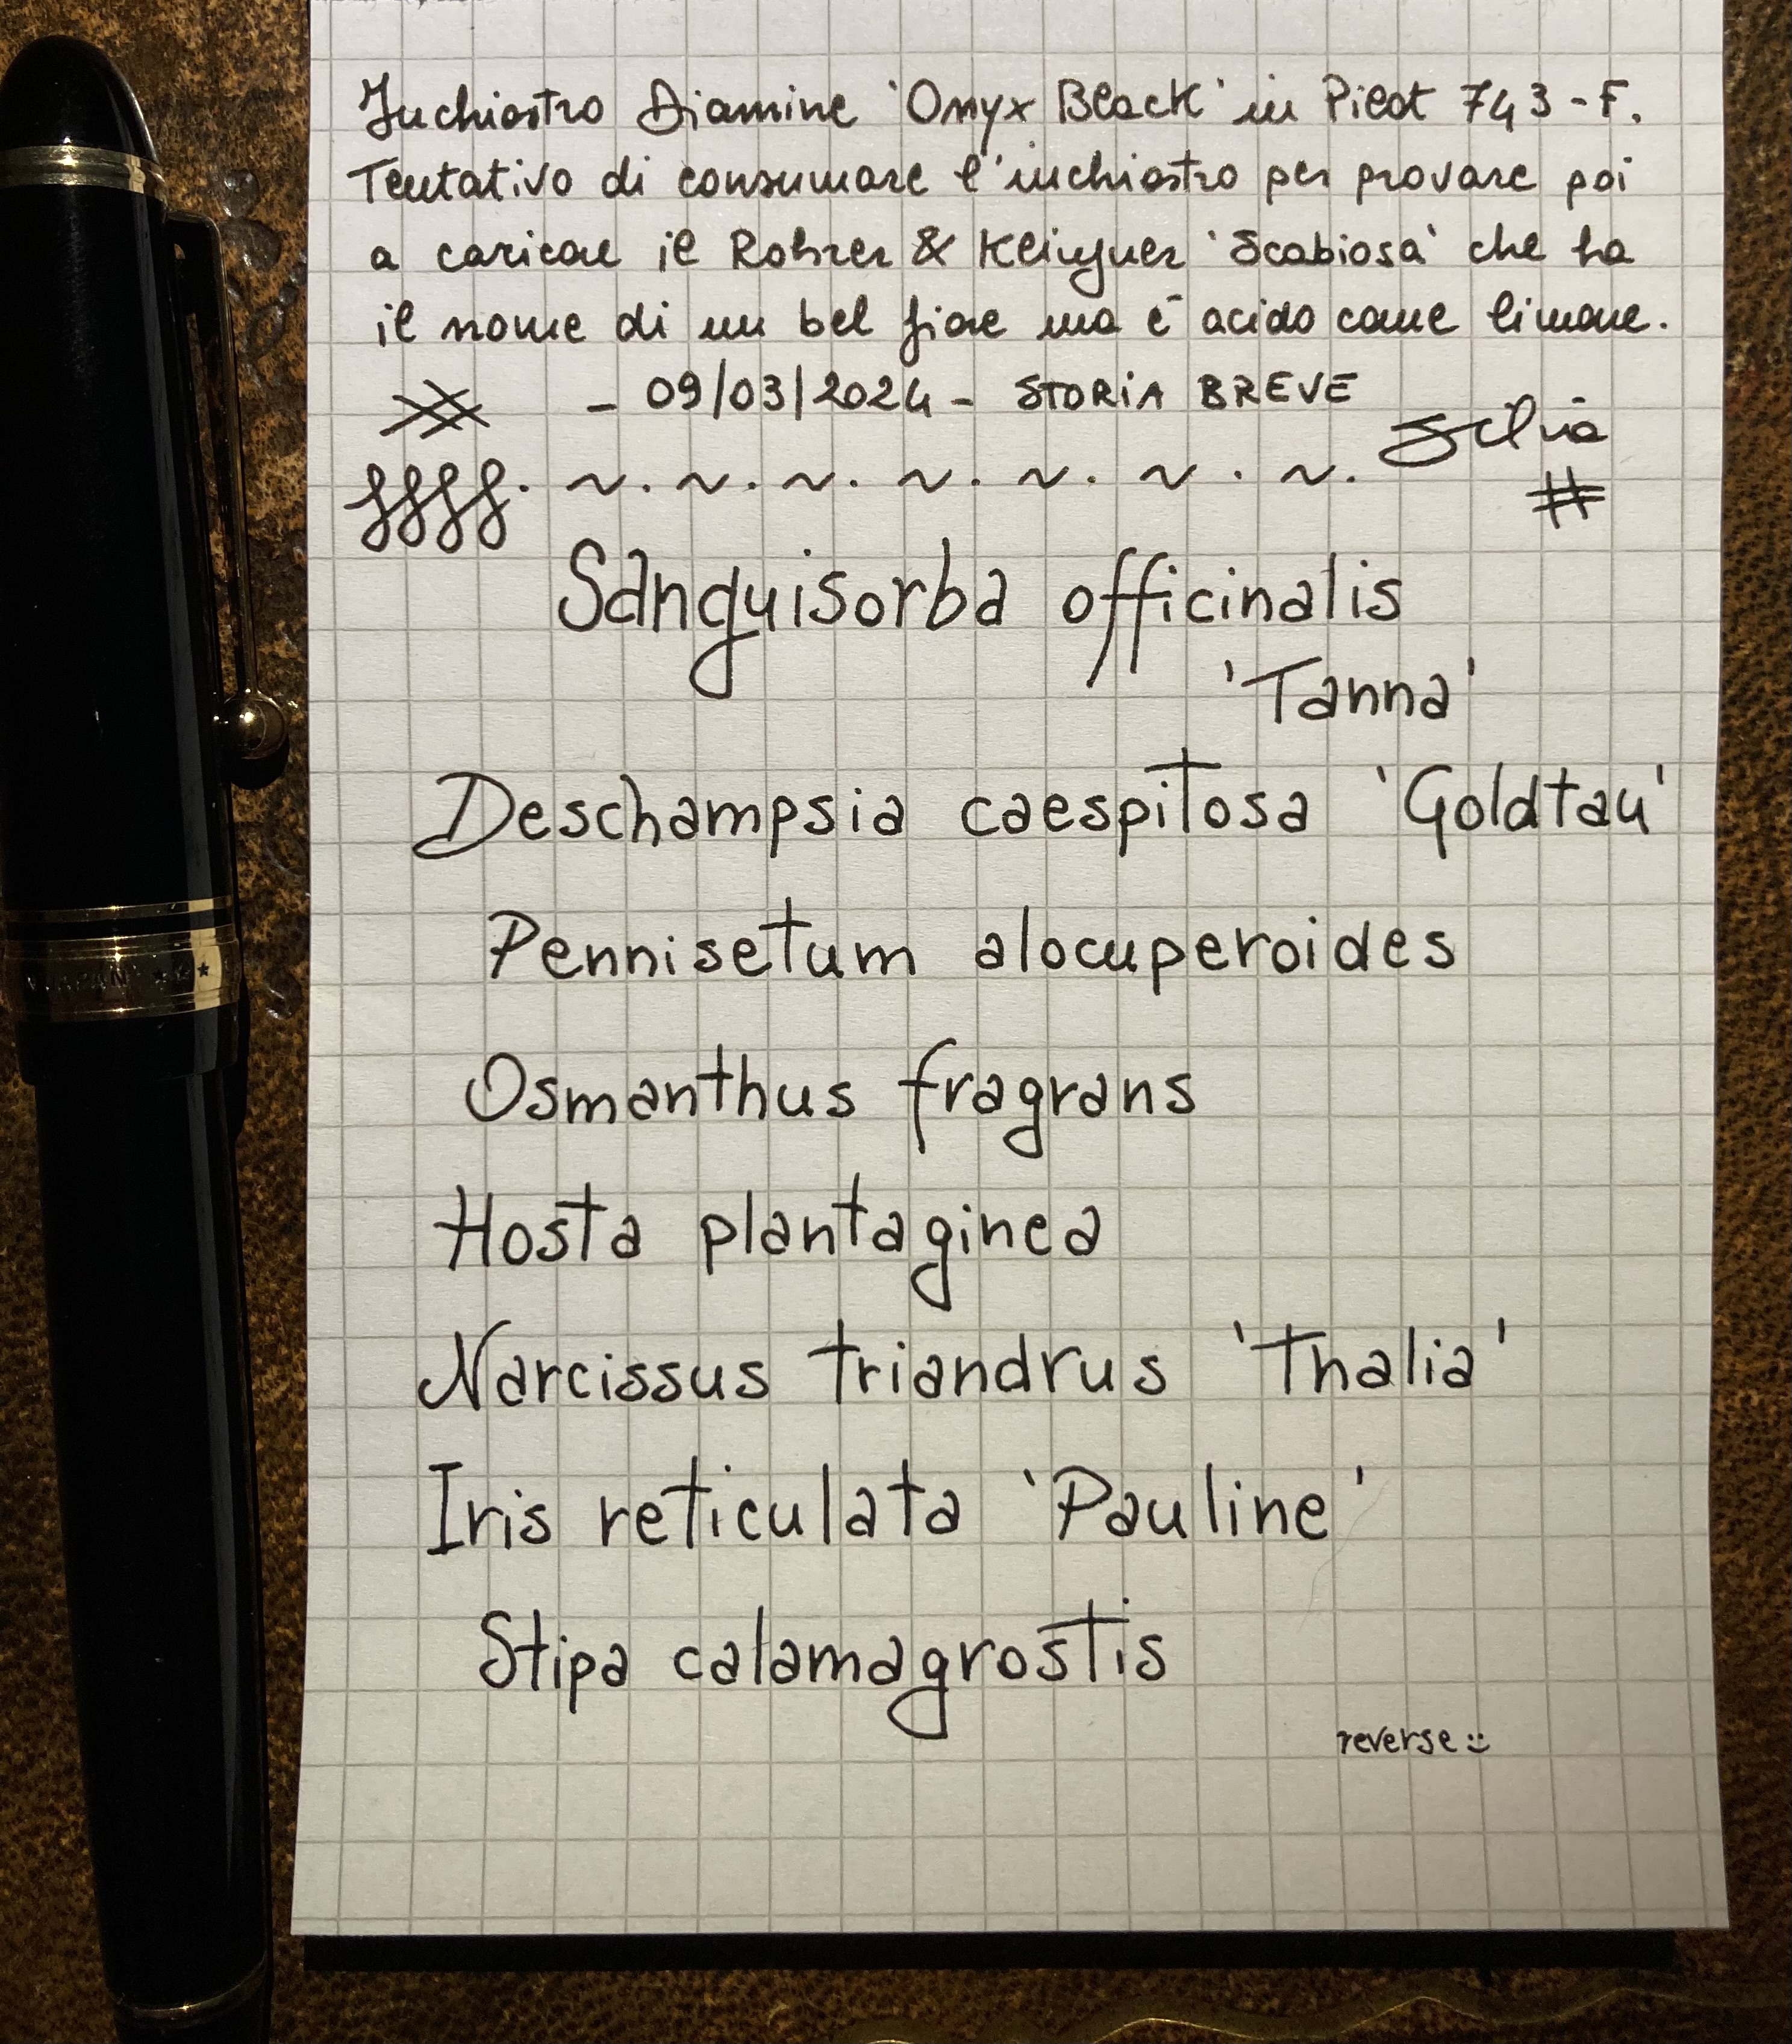 Inchiostro Diamine 'Onyx Black' in Pilot 743-F.
Tentativo di consumare l'inchiostro per provare poi
a caricare il Rohrer & Klingner 'Scabiosa' che ha
il nome di un bel fiore ma è acido come limone.
- 09/03/2024 - STORIA BREVE
Silvia
#
Sanguisorba officinalis
'Tanna'
Deschampsia caespitosa 'Goldtau'
Pennisetum alocuperoides
Osmanthus fragrans
Hosta plantaginea
Narcissus triandrus 'Thalia'
Iris reticulata 'Pauline'
Stipa calamagrostis
reverse :)